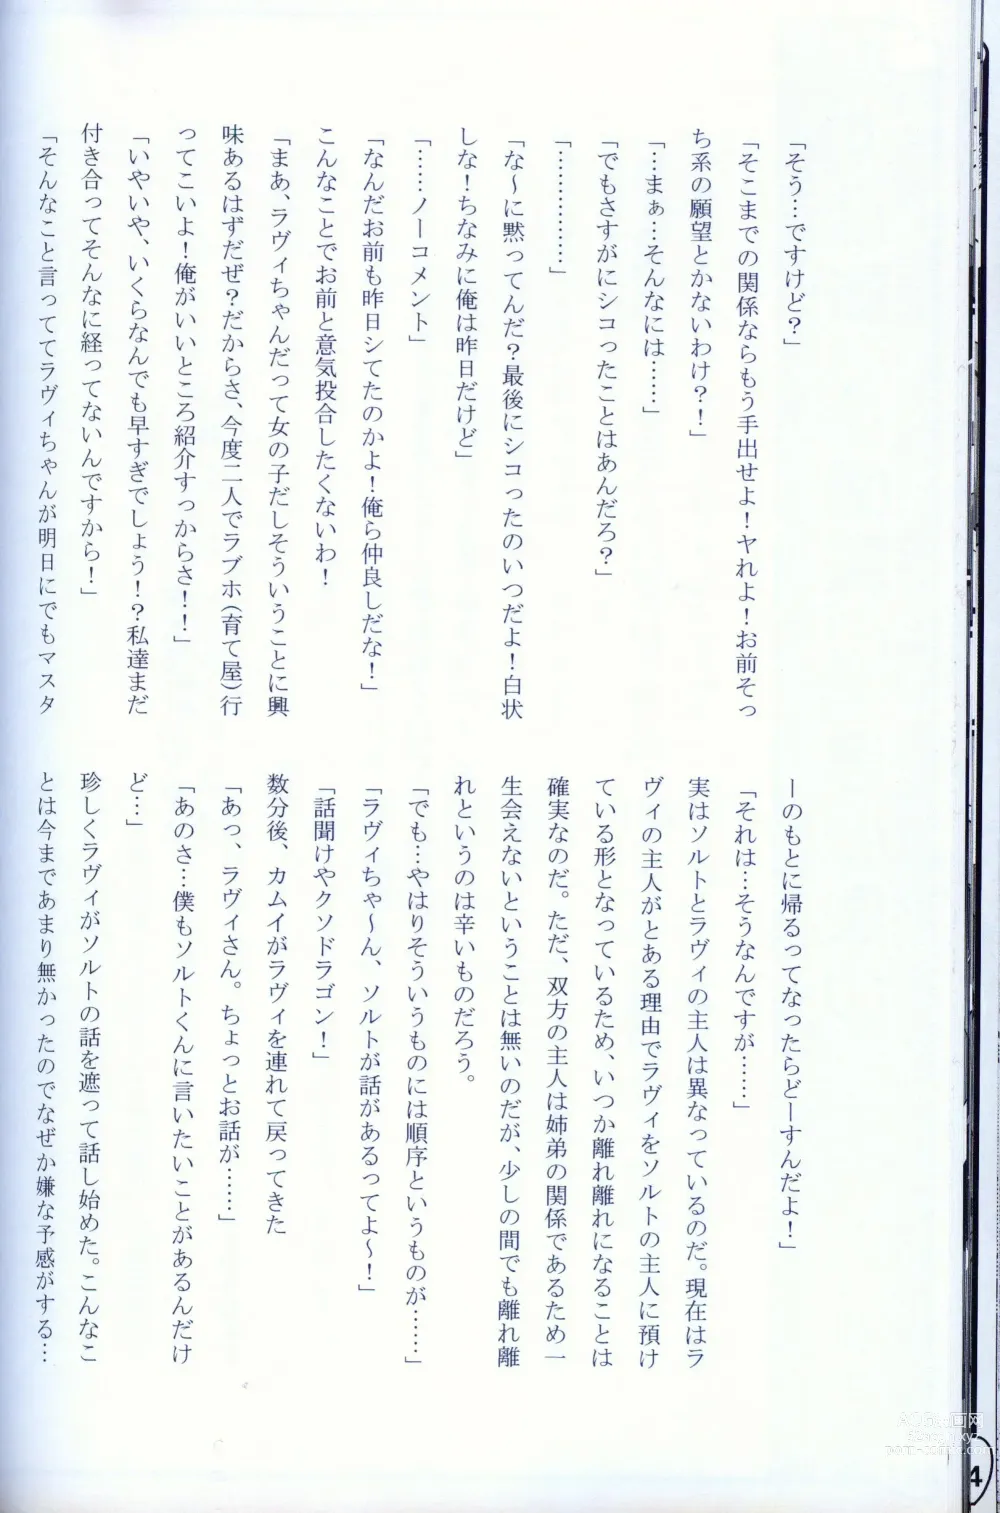 「そう…ですけど？」
「そこまでの関係ならもう手出せよ！ヤれよ！お前そっ
ち系の願望とかないわけ？！」
「…まぁ…そんなには……」
「でもさすがにシコったことはあんだろ？」
「……………」
「な～に黙ってんだ？最後にシコったのいつだよ！白状
しな！ちなみに俺は昨日だけど」
「……ノーコメント」
「なんだお前も昨日シてたのかよ！俺ら仲良しだな！」
こんなことでお前と意気投合したくないわ！
「まあ、ラヴィちゃんだって女の子だしそういうことに興
味あるはずだぜ？だからさ、今度二人でラブホ（育て屋）行
ってこいよ！俺がいいところ紹介すっからさ！！」
「いやいや、いくらなんでも早すぎでしょう！？私達まだ
付き合ってそんなに経ってないんですから！」
「そんなこと言っててラヴィちゃんが明日にでもマスタ
ーのもとに帰るってなったらどーすんだよ！」
「それは…そうなんですが……」
実はソルトとラヴィの主人は異なっているのだ。現在はラ
ヴィの主人がとある理由でラヴィをソルトの主人に預け
ている形となっているため、いつか離れ離れになることは
確実なのだ。ただ、双方の主人は姉弟の関係であるため一
生会えないということは無いのだが、少しの間でも離れ離
れというのは辛いものだろう。
「でも…やはりそういうものには順序というものが……」
「ラヴィちゃ～ん、ソルトが話があるってよ～！」
「話聞けやクソドラゴン！」
数分後、カムイがラヴィを連れて戻ってきた
「あっ、ラヴィさん。ちょっとお話が……」
「あのさ…僕もソルトくんに言いたいことがあるんだけ
ど…」
珍しくラヴィがソルトの話を遮って話し始めた。こんなこ
とは今まであまり無かったのでなぜか嫌な予感がする…
4